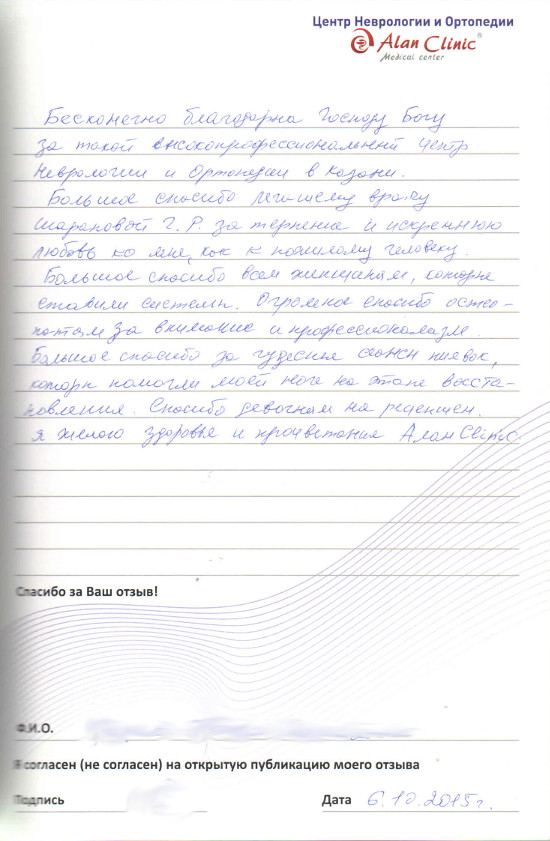 Центр Неврологии и Ортопедии
Alan Clinic®
Medical center
Бесконечно благодарна Господу Богу
за такой высокопрофессиональный Центр
Неврологии и Ортопедии в Казани.
Большое спасибо лечащему врачу
Шараповой Г. Р. за терпение и искреннюю
любовь ко мне, как к пожилому человеку.
Большое спасибо всем женщинам, которые
ставили системы. Огромное спасибо остео-
патам за внимание и профессионализм.
Большое спасибо за чудесные пиявок,
которые помогли моей ноге на этапе восста-
новления. Спасибо девочкам на ресепшен.
Я желаю здоровья и процветания Алан Clinic.
Спасибо за Ваш отзыв!
Ф.И.О.
Я согласен (не согласен) на открытую публикацию моего отзыва
Подпись Дата 6.10.2015г.